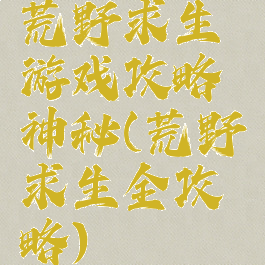 荒野求生
游戏攻略
神秘(荒野
求生全攻
略)